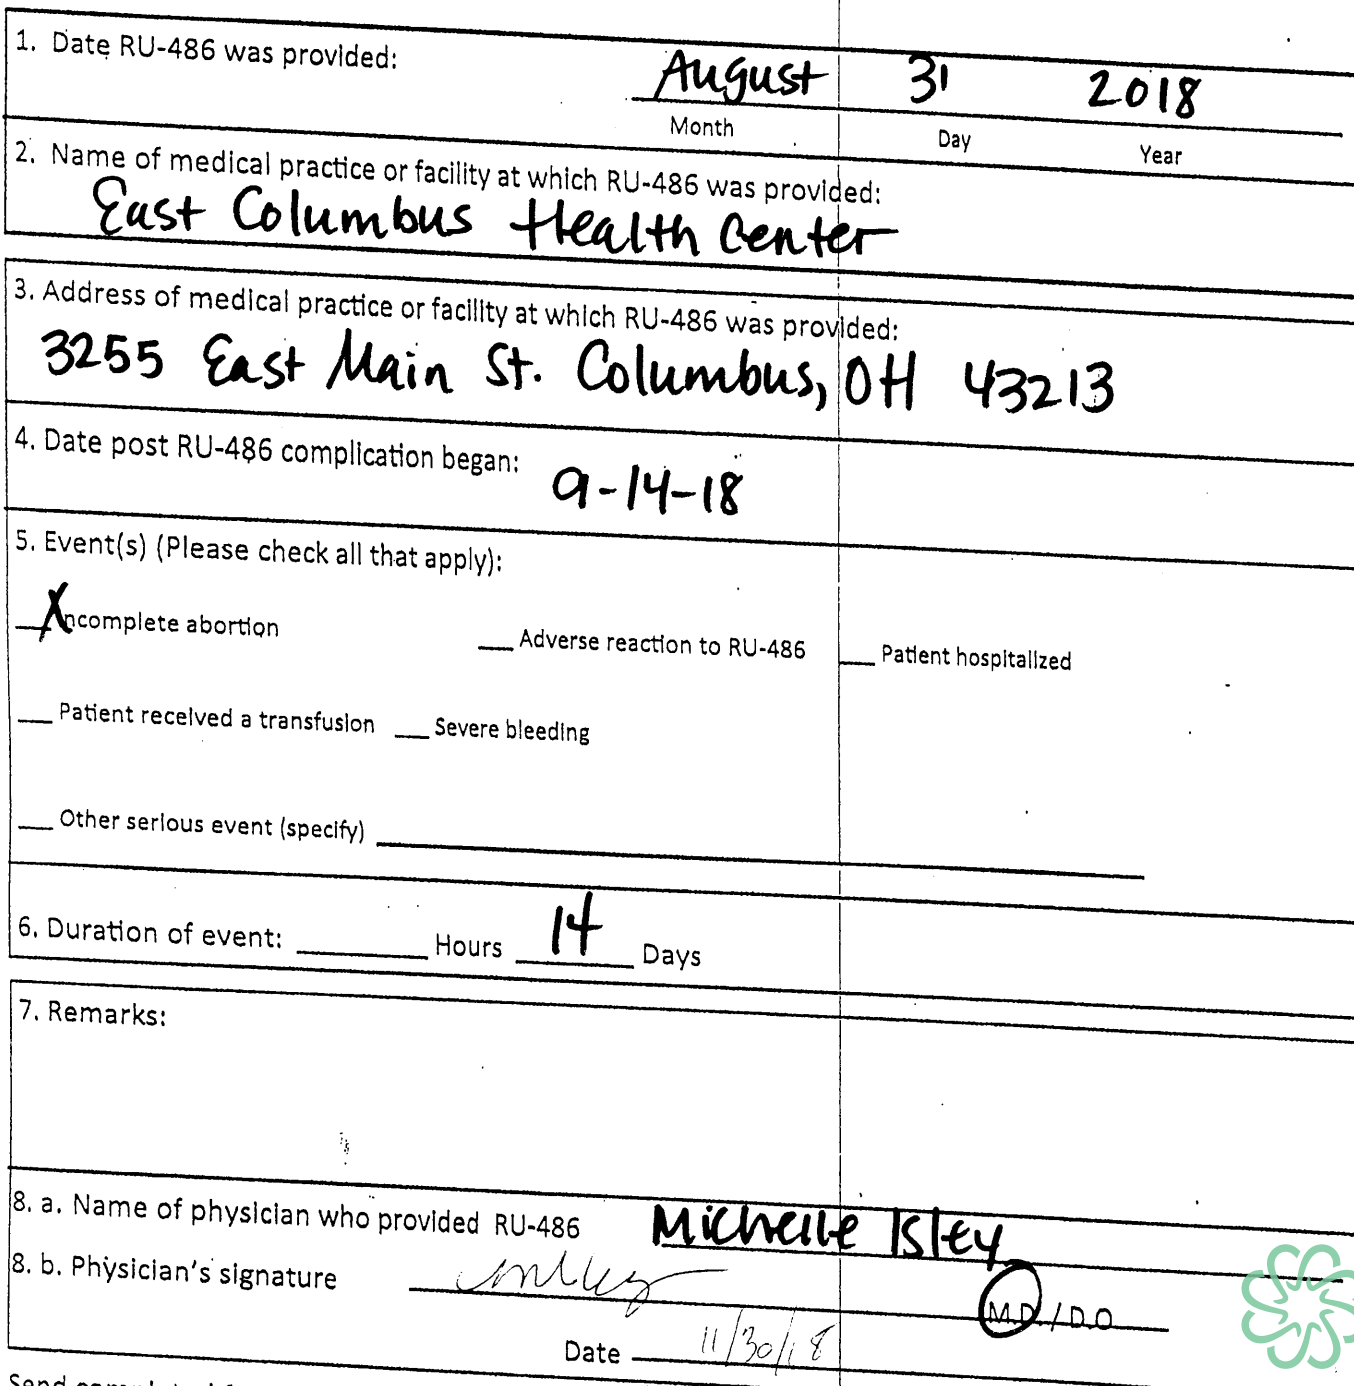 1. Date RU-486 was provided: August 31 2018
Month Day Year
2. Name of medical practice or facility at which RU-486 was provided:
East Columbus Health Center
3. Address of medical practice or facility at which RU-486 was provided:
3255 East Main St. Columbus, OH 43213
4. Date post RU-486 complication began: 9-14-18
5. Event(s) (Please check all that apply):
X Incomplete abortion __ Adverse reaction to RU-486 __ Patient hospitalized
__ Patient received a transfusion __ Severe bleeding
__ Other serious event (specify)
6. Duration of event: ____ Hours 14 Days
7. Remarks:
8. a. Name of physician who provided RU-486 Michelle Isley
8. b. Physician's signature M.D. / D.O
Date 11/30/18